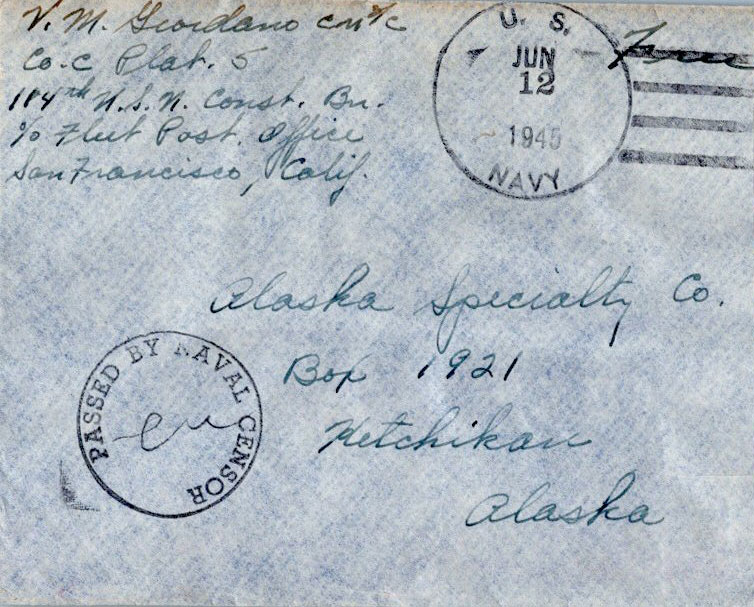 V. M. Giordano CM 3/c
Co. C Plat. 5
104th U.S.N. Const. Bn.
c/o Fleet Post Office
San Francisco, Calif.
U. S.
JUN
12
1945
NAVY
Free
Alaska Specialty Co.
Box 1921
Ketchikan
Alaska
PASSED BY NAVAL CENSOR